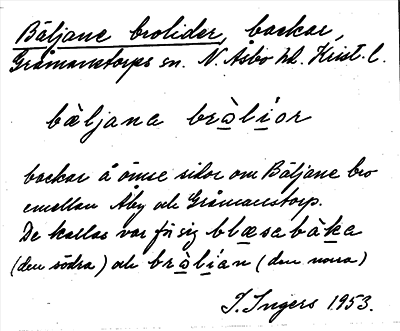 Bäljane brolider, backar,
Gråmanstorps sn. N. Åsbo hd. Krist. l.
bäljana bròlíor
backar å ömse sidor om Bäljane bro
emellan Åby och Gråmanstorp.
De kallas var för sig blæsabàka
(den södra) och bròlían (den norra)
I. Ingers 1953.